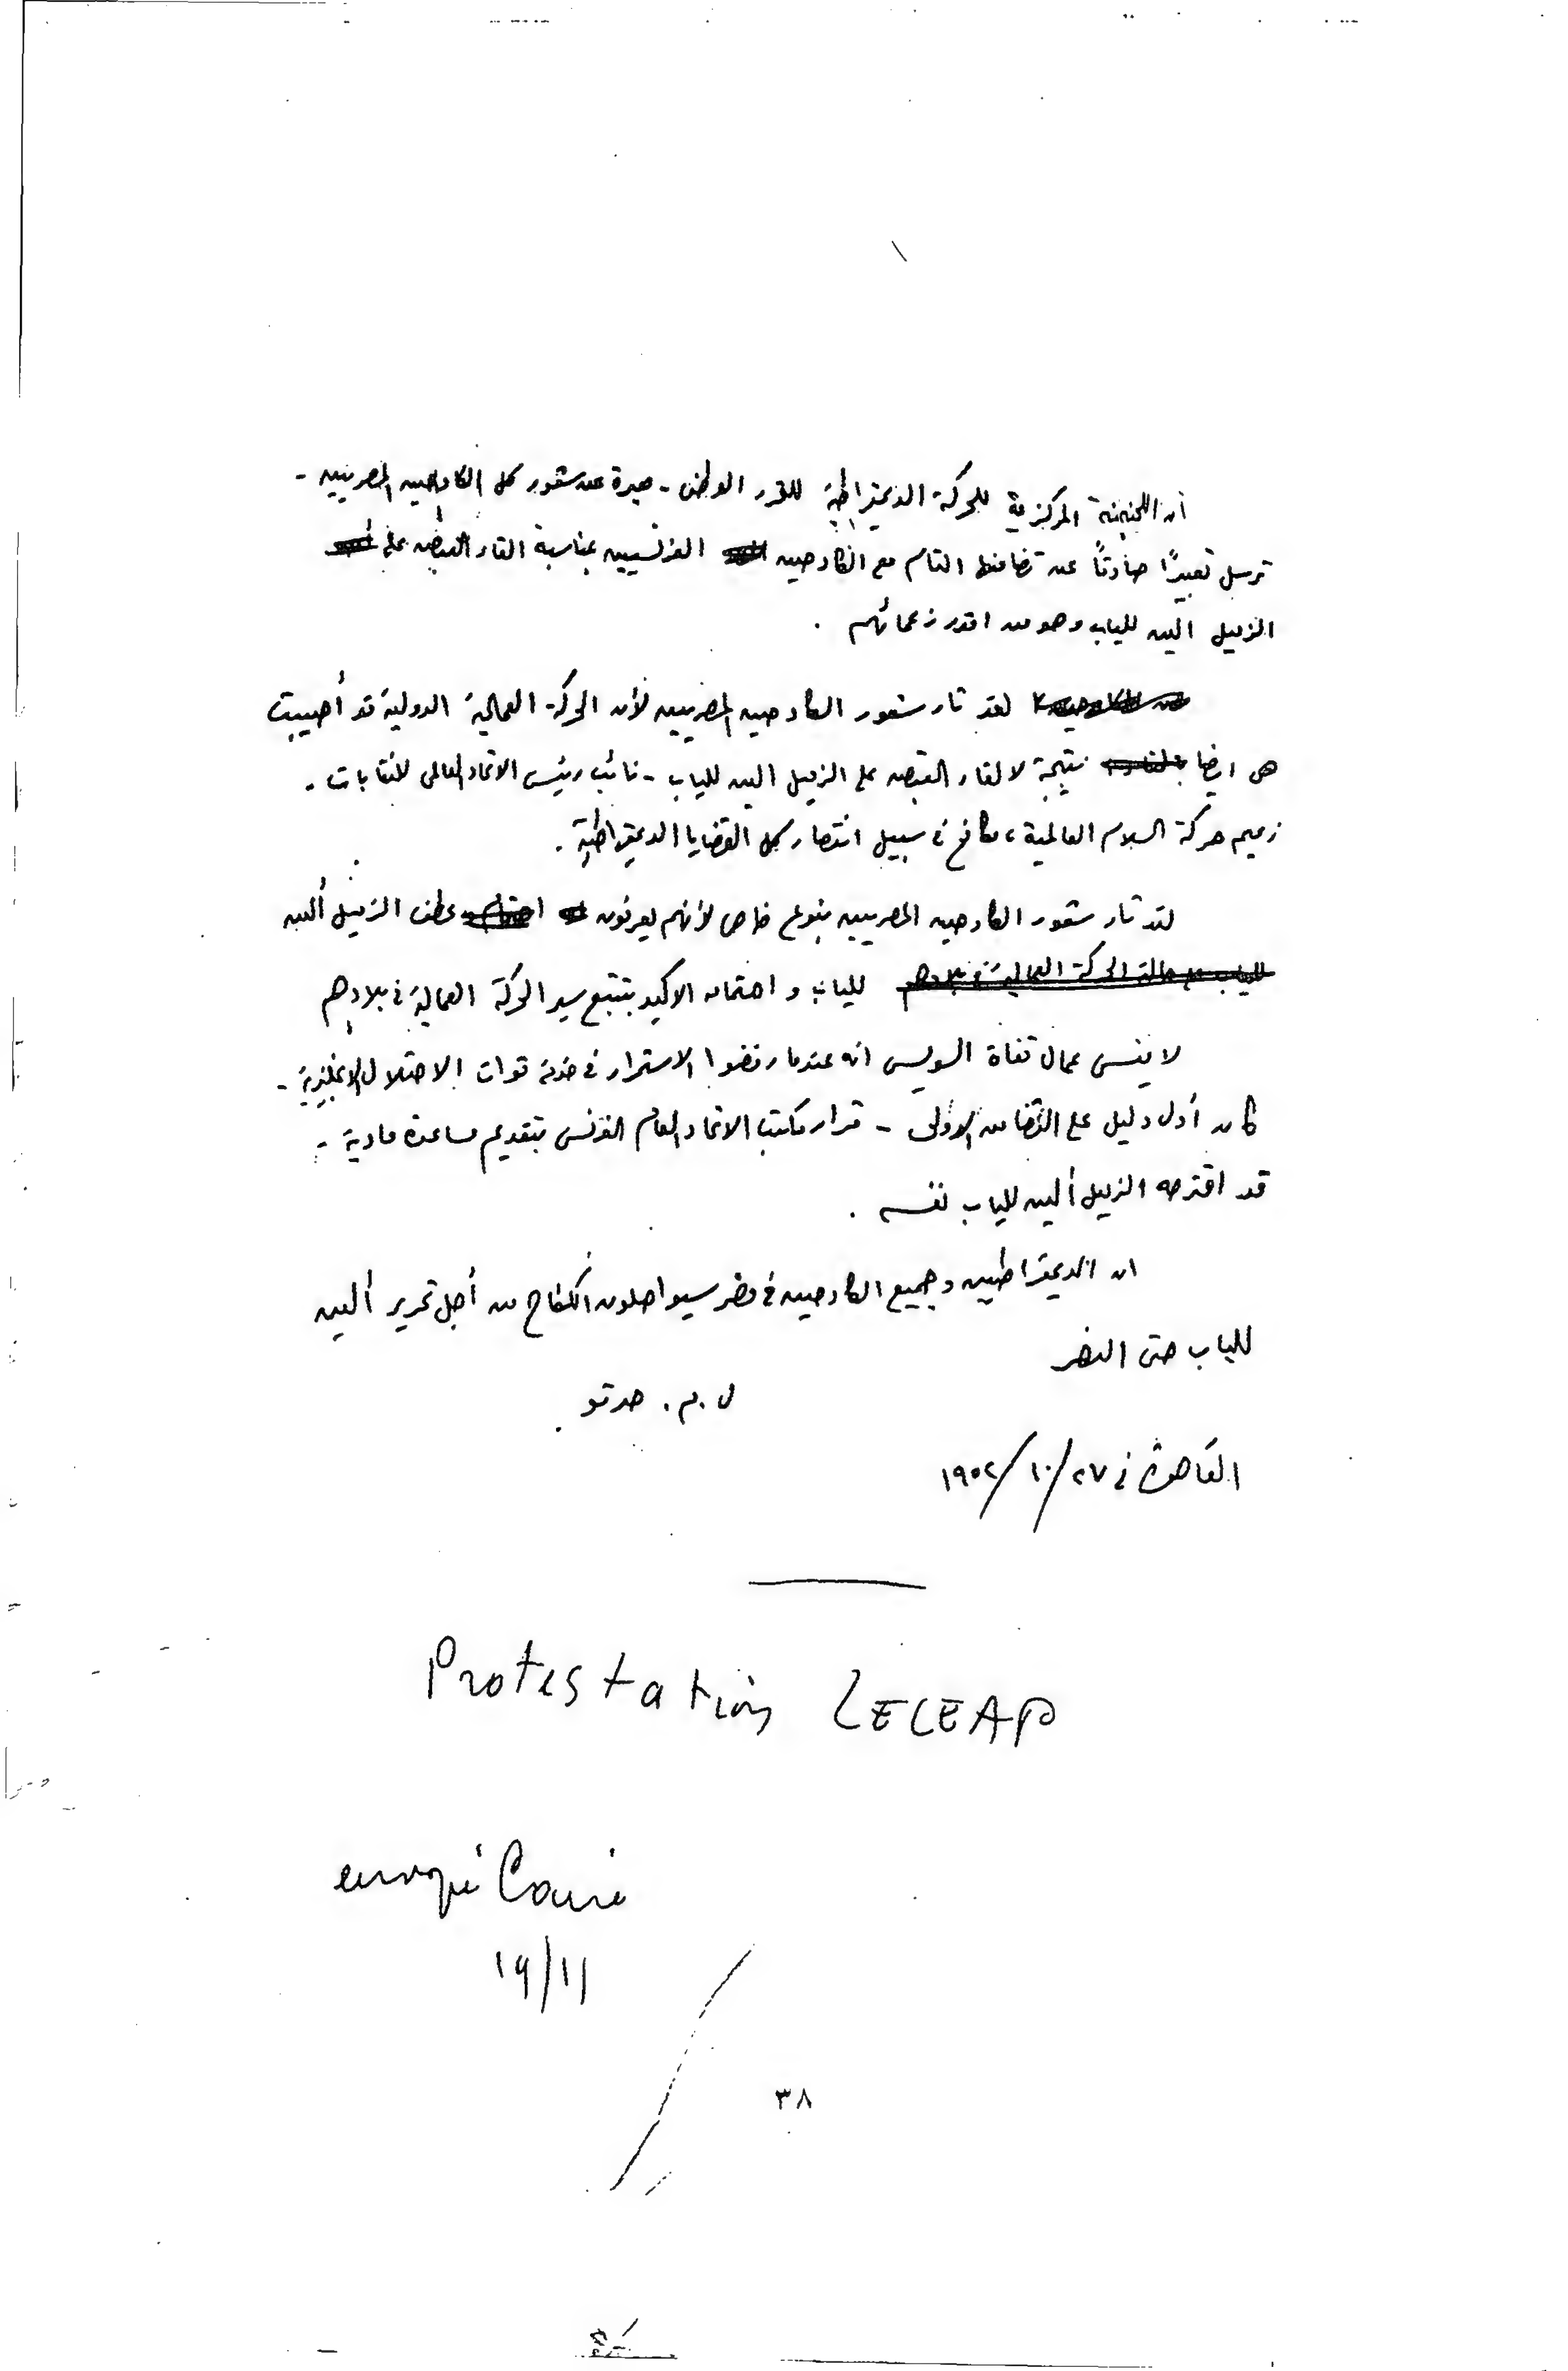 ان اللجنة المركزية للحركة الديمقراطية للتحرر الوطنى - معبرة عن شعور كل الكادحين المصريين -
ترسل تعبيرًا صادقًا عن تضامنها التام مع الكادحين الفرنسيين بمناسبة القاء القبض على
الزميل الين للياب وهو من اقدر زعمائهم .
لقد ثار شعور الكادحين المصريين لأن الحركة العمالية الدولية قد أصيبت
هى ايضا نتيجة لالقاء القبض على الزميل الين للياب - نائب رئيس الاتحاد العالمى للنقابات -
زعيم حركة السلام العالمية، مكافح فى سبيل انتصار كل القضايا الديمقراطية .
لقد ثار شعور الكادحين المصريين بنوع خاص لأنهم يعرفون عطف الزميل ألين
للياب مع حالة الحركة العمالية فى بلادهم للياب و اهتمامه الاكيد بتتبع سير الحركة العمالية فى بلادهم
لا ينسى عمال قناة السويس انه عندما رفضوا الاستمرار فى خدمة قوات الاحتلال الانجليزية -
كان أول دليل على التضامن الدولى - قرار مكتب الاتحاد العام الفرنسى بتقديم مساعدة مادية -
قد اقترحه الزميل ألين للياب نفسه .
ان الديمقراطيين وجميع الكادحين فى مصر سيواصلون الكفاح من أجل تحرير ألين
للياب حتى النصر
ل . م . حدتو .
القاهرة فى ٢٧/١٠/١٩٥٢
Protestation LECEAP
envoyé Caire
19/11
٣٨